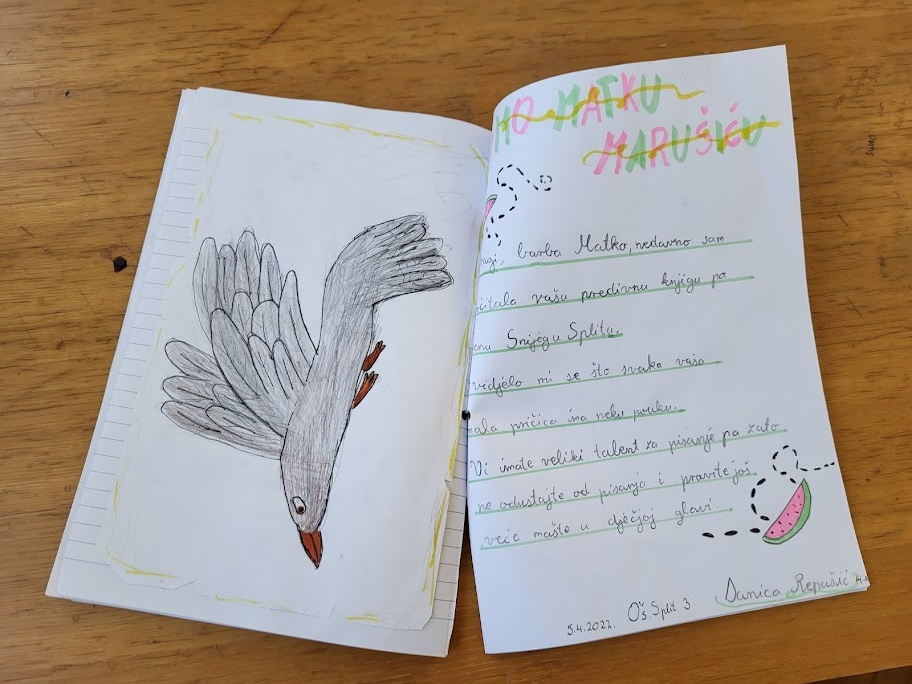 MO MATKU
MARUŠIĆU
ragi, barba Matko, nedavno sam
čitala vašu predivnu knjigu pa
onu Snijegu Splita.
vidjelo mi se što svaka vaša
ala pričica ima neku pouku.
Vi imate veliki talent za pisanje pa zato
ne odustajte od pisanja i pravite još
veće mašte u dječjoj glavi.
Danica Repušić
5.4.2022. OŠ, Split 3